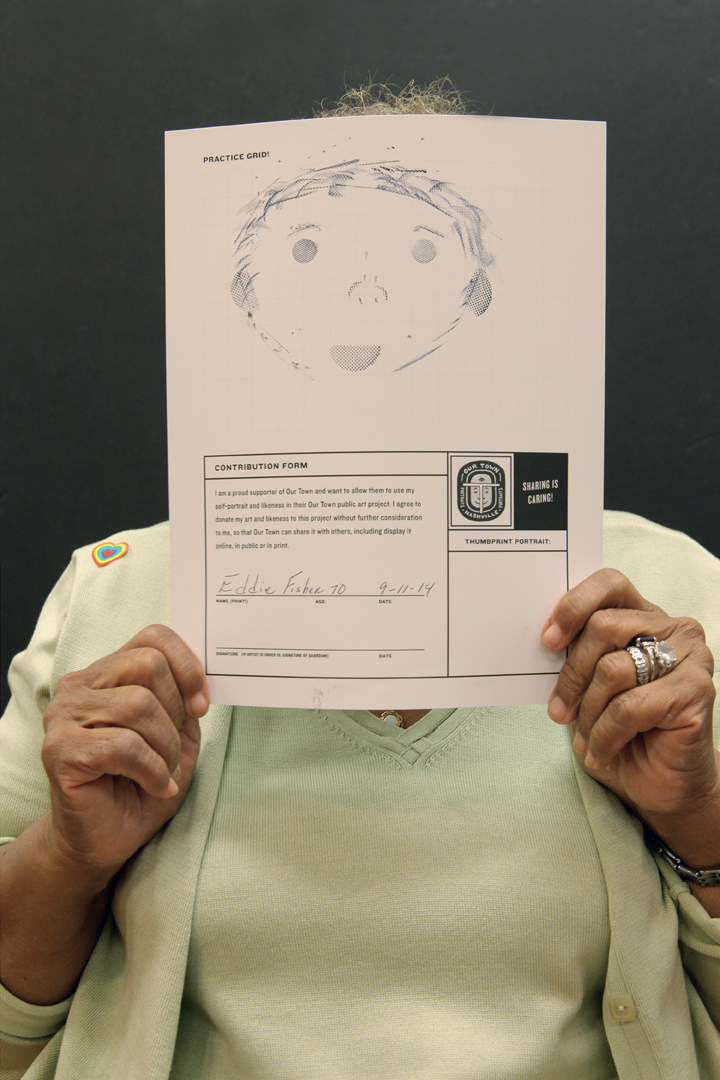 PRACTICE GRID!
CONTRIBUTION FORM
I am a proud supporter of Our Town and want to allow them to use my
self-portrait and likeness in their Our Town public art project. I agree to
donate my art and likeness to this project without further consideration
to me, so that Our Town can share it with others, including display it
online, in public or in print.
Eddie Fisher 70 9-11-14
NAME (PRINT) AGE DATE
SIGNATURE (IF ARTIST IS UNDER 18, SIGNATURE OF GUARDIAN) DATE
OUR TOWN
PORTRAITS PORTRAITS
NASHVILLE
SHARING IS
CARING!
THUMBPRINT PORTRAIT: